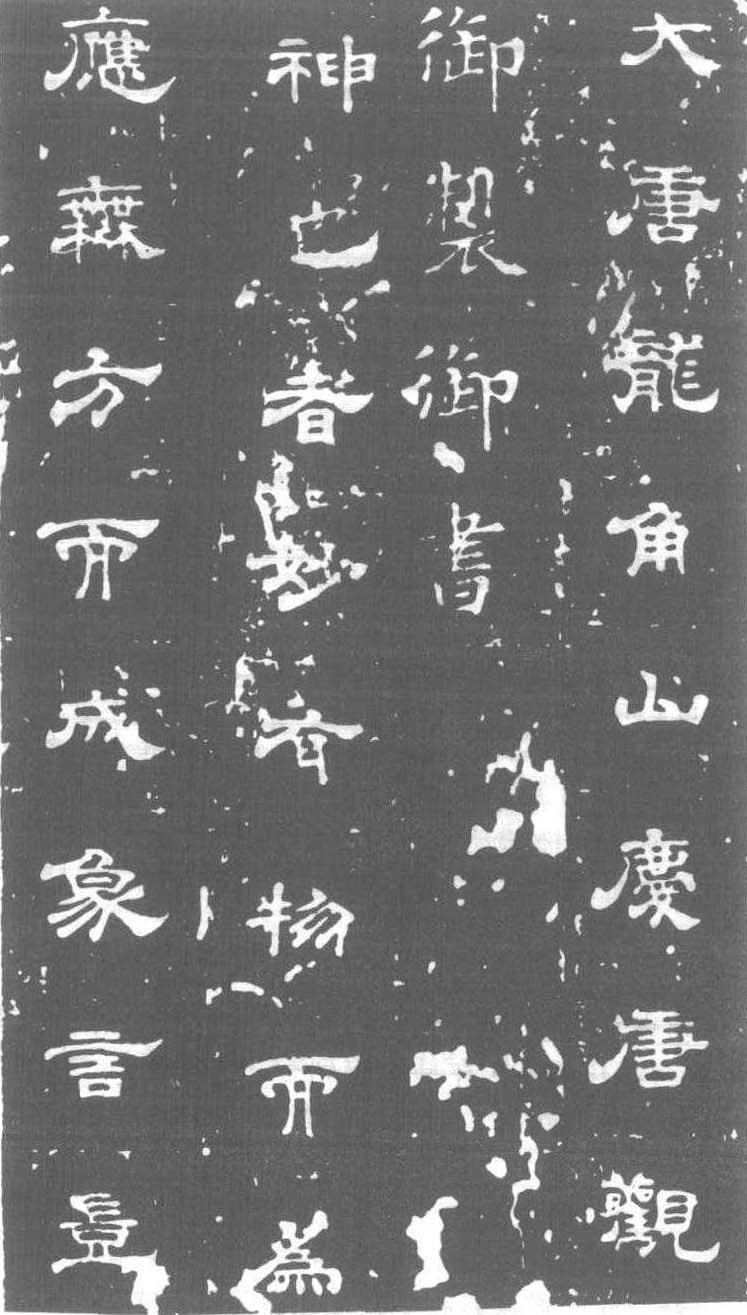 大唐龍角山慶唐觀
御製御書
神也者妙有物而為
應無方而成象言豈